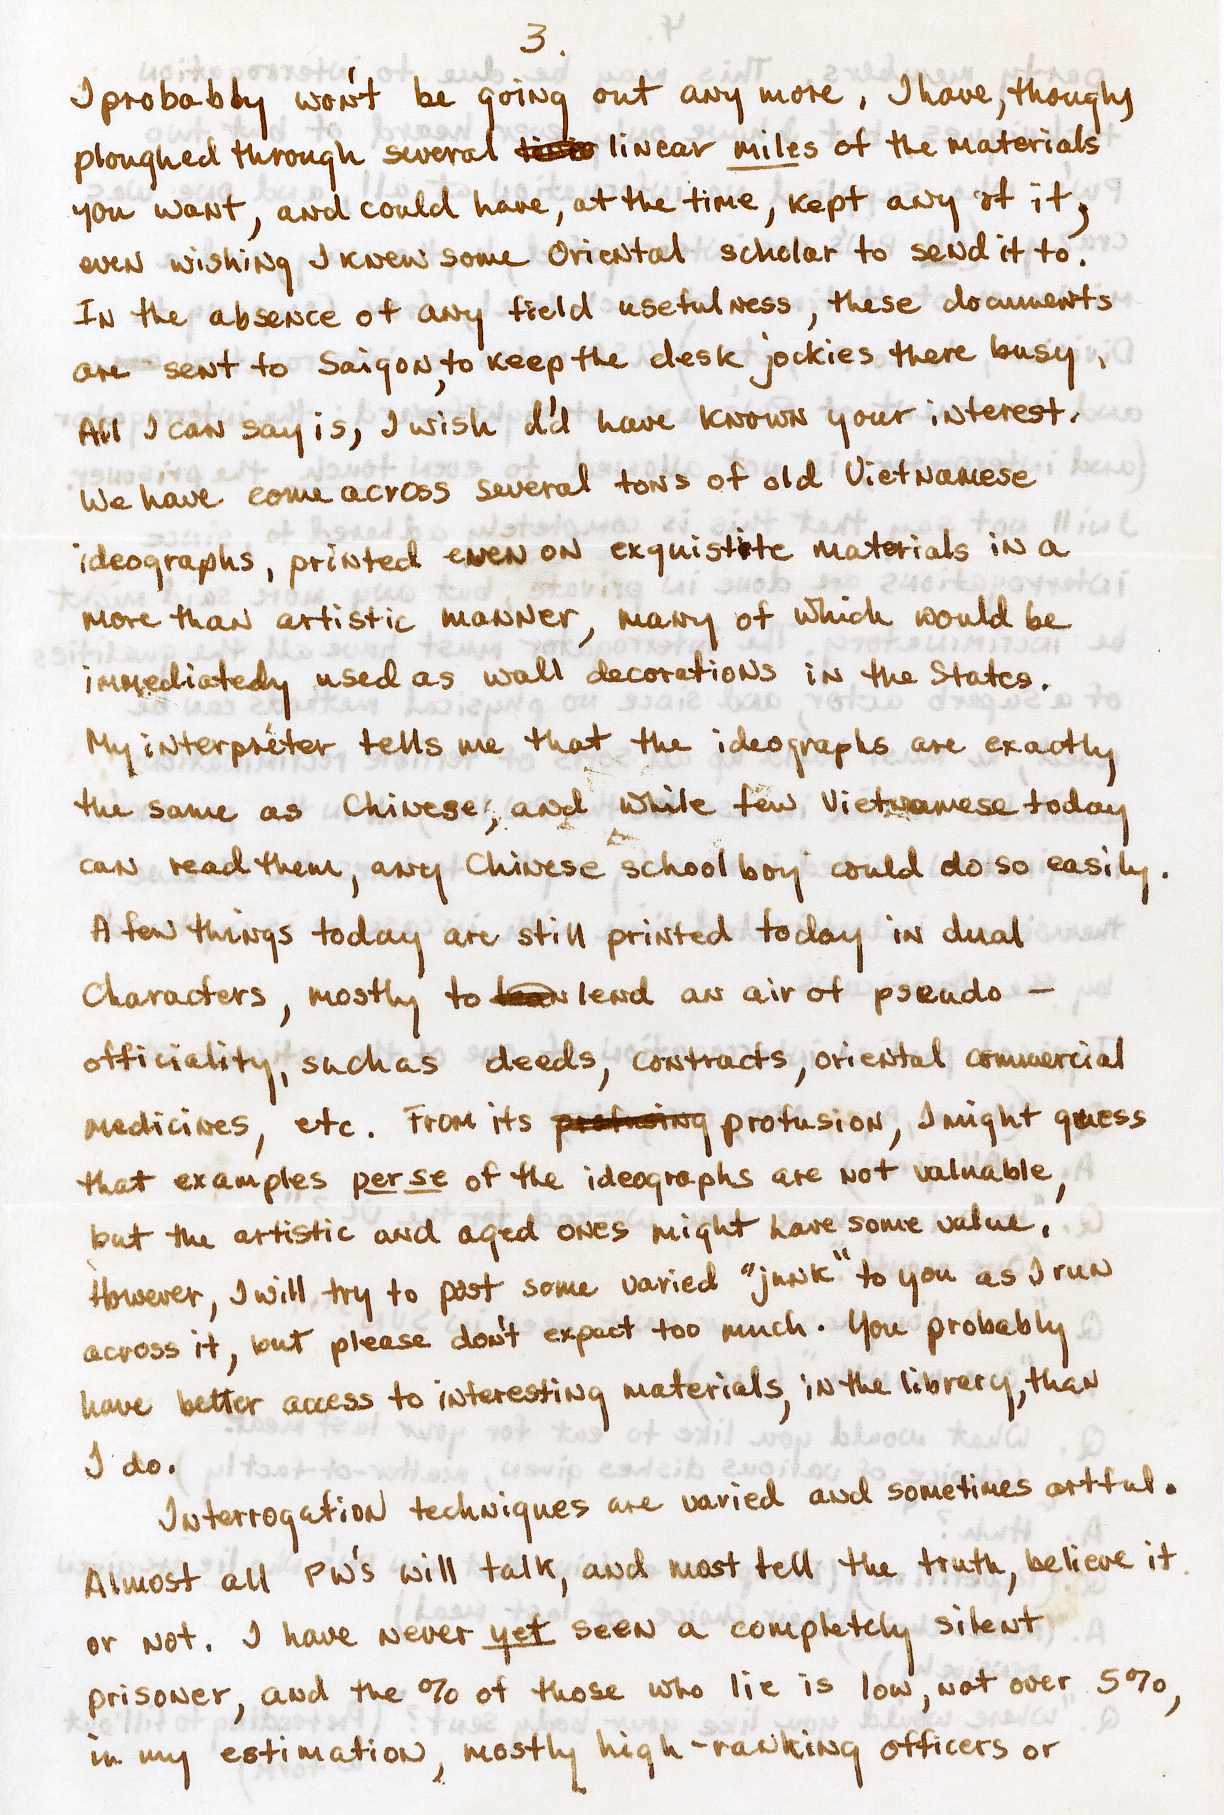 3.
I probably won't be going out any more. I have, though,
ploughed through several linear miles of the materials
you want, and could have, at the time, kept any of it,
even wishing I knew some Oriental scholar to send it to.
In the absence of any field usefulness, these documents
are sent to Saigon, to keep the desk jockies there busy.
All I can say is, I wish I'd have known your interest.
We have come across several tons of old Vietnamese
ideographs, printed even on exquisite materials in a
more than artistic manner, many of which would be
immediately used as wall decorations in the States.
My interpreter tells me that the ideographs are exactly
the same as Chinese, and while few Vietnamese today
can read them, any Chinese schoolboy could do so easily.
A few things today are still printed today in dual
characters, mostly to lend an air of pseudo-
officiality, such as deeds, contracts, oriental commercial
medicines, etc. From its profusing profusion, I might guess
that examples per se of the ideographs are not valuable,
but the artistic and aged ones might have some value.
However, I will try to post some varied "junk" to you as I run
across it, but please don't expect too much. You probably
have better access to interesting materials, in the library, than
I do.
Interrogation techniques are varied and sometimes artful.
Almost all PW's will talk, and most tell the truth, believe it
or not. I have never yet seen a completely silent
prisoner, and the % of those who lie is low, not over 5%,
in my estimation, mostly high-ranking officers or